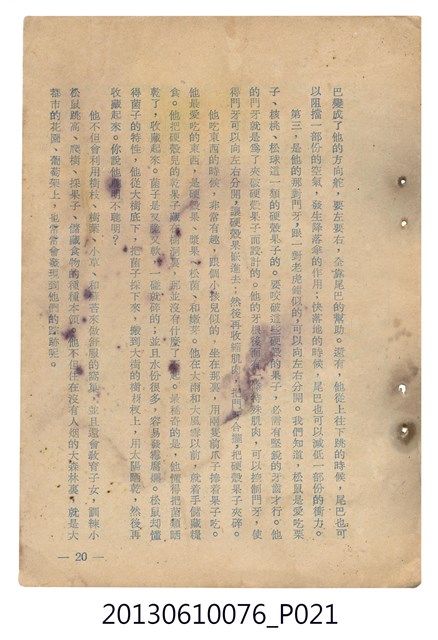 巴變成了他的方向舵，要左要右，全靠尾巴的幫助。還有，他從上往下跳的時候，尾巴也可
以阻擋一部份的空氣，發生降落傘的作用；快落地的時候，尾巴也可以減低一部份的衝力。
第三，是他的那對門牙，跟一對老虎鉗似的，可以向左右分開。我們知道，松鼠是愛吃栗
子、核桃、松球這一類的硬殼果子的。要咬破這些硬殼的果子，必需有堅銳的牙齒才行。他
的門牙就是為了夾破硬殼果子而設計的。他的牙根後面 特殊肌肉，可以控制門牙，使
得門牙可以向左右分開，讓硬殼果嵌進去；然後再收縮肌肉，把門牙合攏，把硬殼果子夾碎。
他吃東西的時候，非常有趣，跟個小孩兒似的，坐在那裏，用兩隻前爪子捧着果子吃。
他最愛吃的東西，是硬殼果、漿果、松菌、和嫩芽。他在大雨和大風雪以前，就着手儲藏糧
食。他把硬殼兒的乾果子藏在樹洞裏，那並沒有什麼了 。最稀奇的是，他懂得把菌類晒
乾了，收藏起來。菌子是又嫩又軟，一碰就碎的；並且水份很多，容易發霉腐爛。松鼠却懂
得菌子的特性，他從大樹底下，把菌子採下來，搬到大樹的樹枝杈上，用太陽晒乾，然後再
收藏起來。你說他聰明不聰明？
他不但會利用樹枝、樹葉、小草、和苔苔來做舒服的窩巢，並且還會教育子女，訓練小
松鼠跳高、爬樹、採果子、儲藏食物的種種本領。他不但住在沒有人烟的大森林裏，就是大
都市的花園、葡萄架上，也常常會發現到他們的蹤跡呢。
— 20 —
20130610076_P021